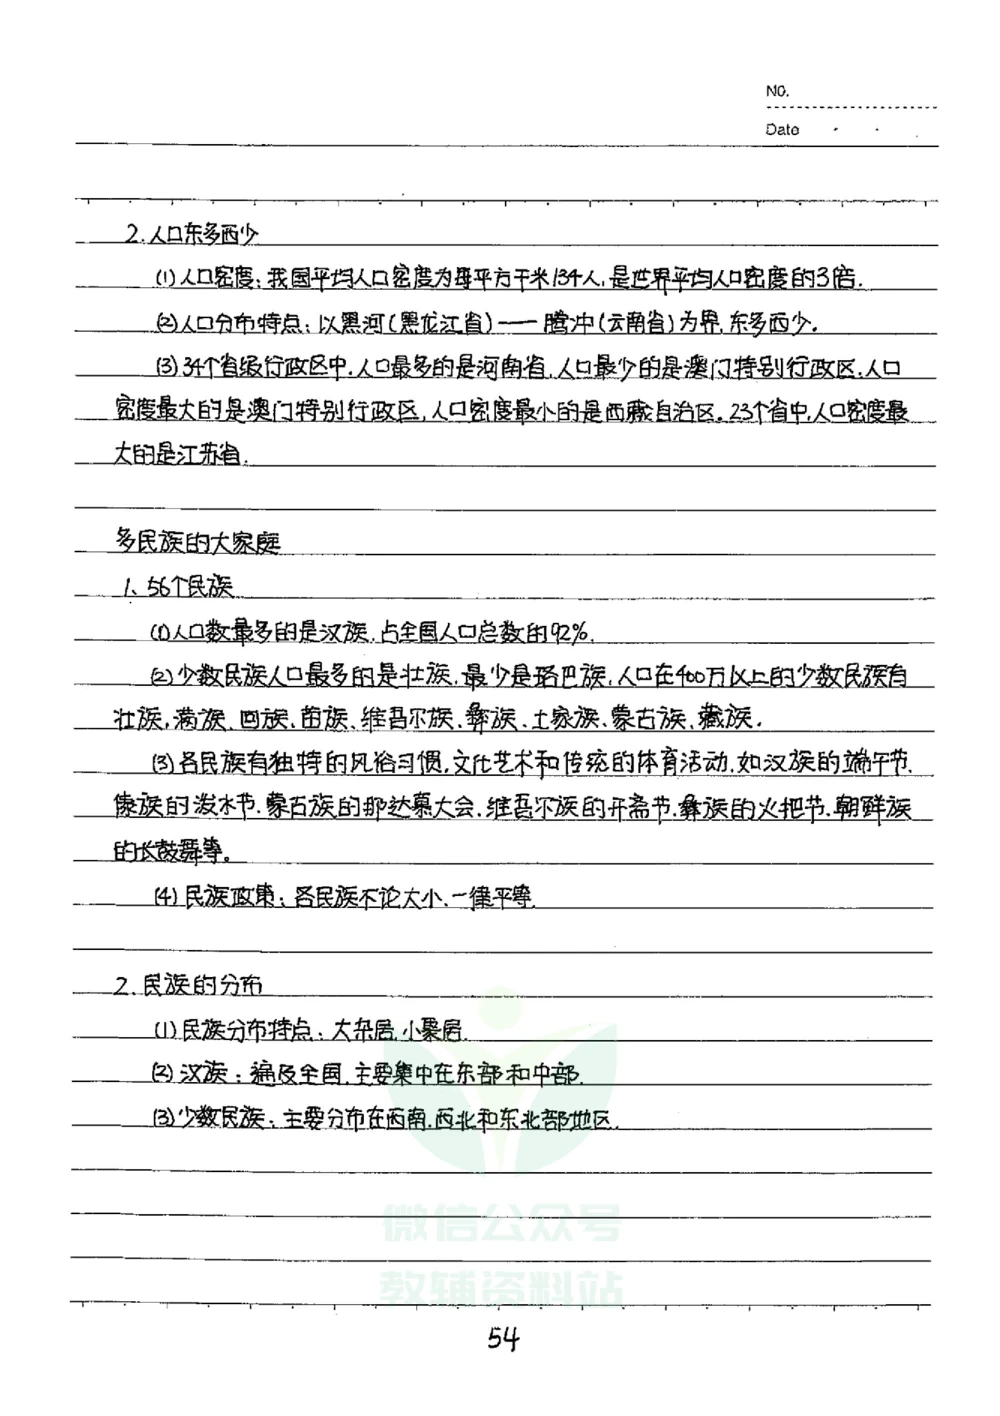 NO.
Date
2.人口东多西少
(1)人口密度:我国平均人口密度为每平方千米134人,是世界平均人口密度的3倍.
(2)人口分布特点:以黑河(黑龙江省)——腾冲(云南省)为界,东多西少.
(3)34个省级行政区中,人口最多的是河南省,人口最少的是澳门特别行政区.人口
密度最大的是澳门特别行政区,人口密度最小的是西藏自治区.23个省中,人口密度最
大的是江苏省.
多民族的大家庭
1、56个民族
(1)人口数最多的是汉族,占全国人口总数的92%.
(2)少数民族人口最多的是壮族,最少是珞巴族,人口在400万以上的少数民族有
壮族,满族、回族、苗族、维吾尔族、彝族、土家族、蒙古族、藏族.
(3)各民族有独特的风俗习惯,文化艺术和传统的体育活动,如汉族的端午节.
傣族的泼水节.蒙古族的那达慕大会.维吾尔族的开斋节.彝族的火把节.朝鲜族
的长鼓舞等。
(4)民族政策:各民族不论大小,一律平等.
2.民族的分布
(1)民族分布特点:大杂居,小聚居.
(2)汉族:遍及全国,主要集中在东部和中部.
(3)少数民族:主要分布在西南.西北和东北部地区.
微信公众号
教辅资料站
54